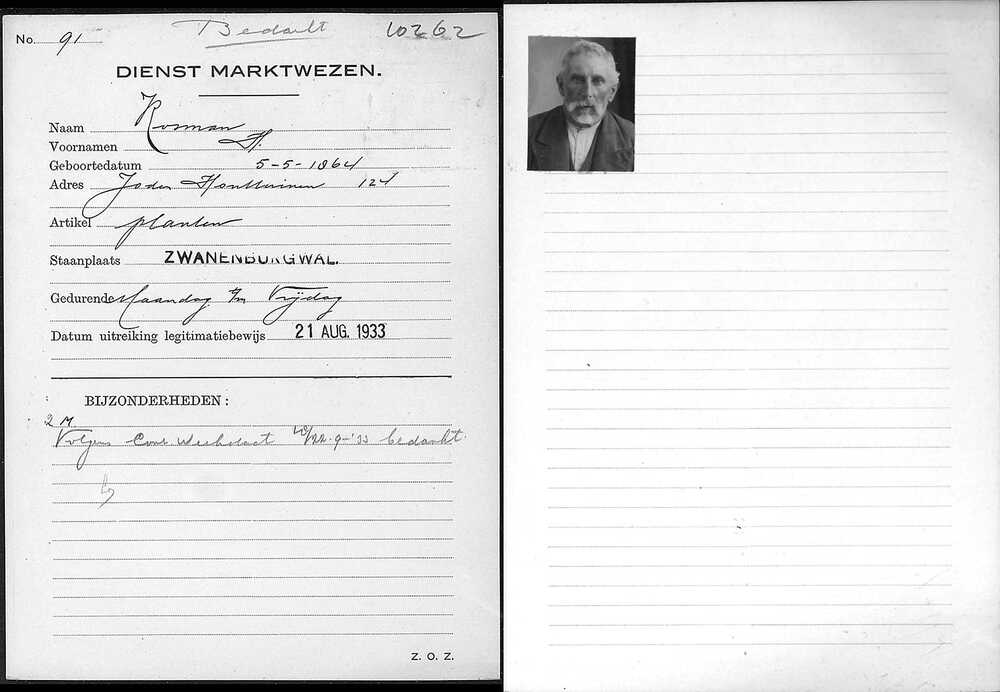 No. 91 Bedankt 10262
DIENST MARKTWEZEN.
Naam Kosman
Voornamen H.
Geboortedatum 5-5-1864
Adres Joden Houttuinen 124
Artikel planten
Staanplaats ZWANENBURGWAL.
Gedurende Maandag t/m Vrijdag
Datum uitreiking legitimatiebewijs 21 AUG. 1933
BIJZONDERHEDEN:
2 M.
Volgens Contr. 9-'33 bedankt.
Z. O. Z.